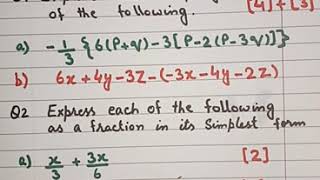 of the following. [4]+[3]
a) -1/3 {6(P+q)-3[P-2(P-3q)]}
b) 6x+4y-3z-(-3x-4y-2z)
Q2 Express each of the following
as a fraction in its simplest form
a) x/3 + 3x/6 [2]